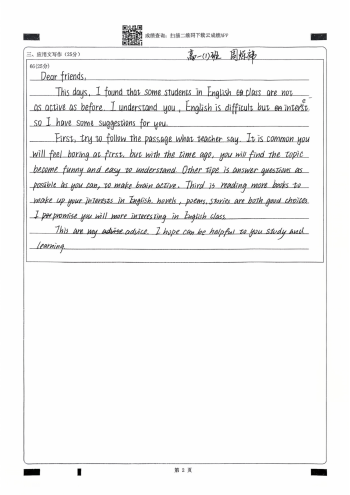 成绩查询：扫描二维码下载云成绩APP
三、应用文写作（25分）
高一(1)班 周
66(25分)
Dear friends,
This days, I found that some students in English class are not
as active as before. I understand you, English is difficult but
so I have some suggestions for you.
First, try to follow the passage what teacher say. It is common you
will feel boring at first, but with the time ago, you will find the topic
become funny and easy to understand. Other tipe is answer questions as
possible as you can, to make brain active. Third is reading more books to
make up your interests in English. novels, poems, stories are both good choices.
I promise you will more interesting in English class.
This are my advice. I hope can be helpful to you study and
learning.
第 5 页